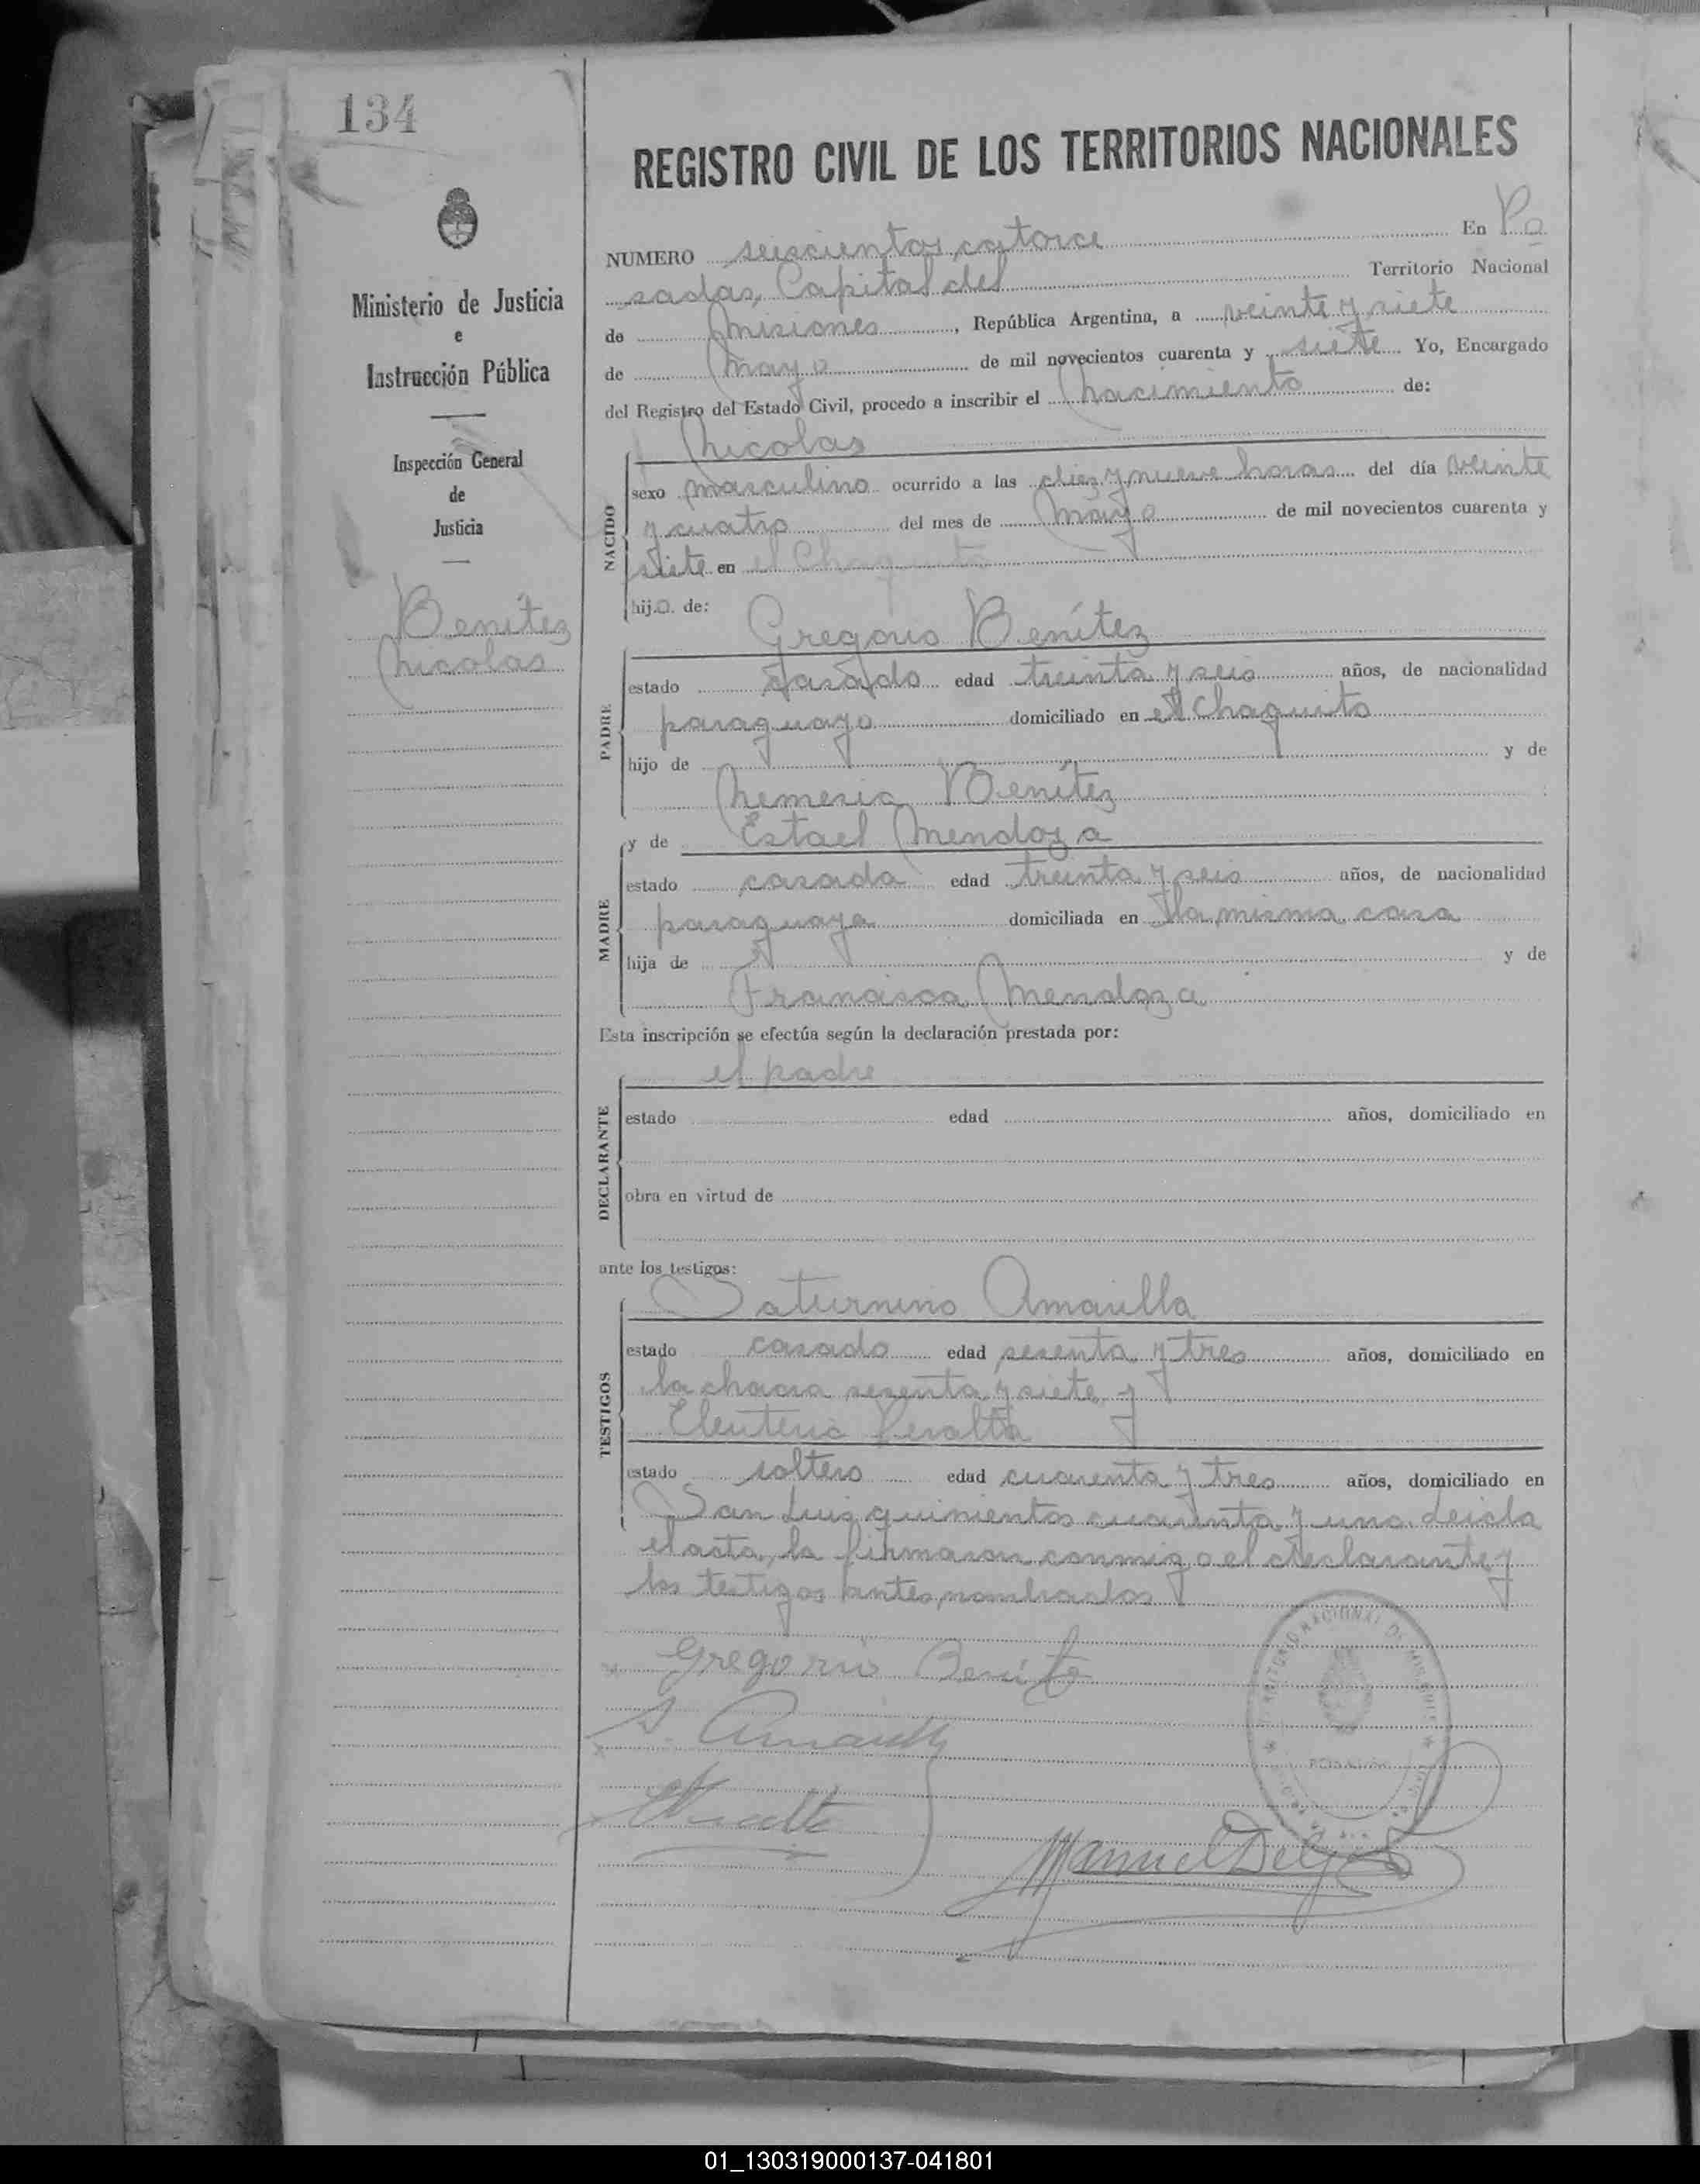 134
REGISTRO CIVIL DE LOS TERRITORIOS NACIONALES
Ministerio de Justicia
e
Instrucción Pública
Inspección General
de
Justicia
Benítez
Nicolas
NUMERO seiscientos catorce En Po
sadas, Capital del Territorio Nacional
de Misiones, República Argentina, a veinte y siete
de Mayo de mil novecientos cuarenta y siete Yo, Encargado
del Registro del Estado Civil, procedo a inscribir el Nacimiento de:
Nicolas
NACIDO
sexo masculino ocurrido a las diez y nueve horas del día veinte
y cuatro del mes de Mayo de mil novecientos cuarenta y
siete en el Chaquito
hijo de:
Gregorio Benítez
PADRE
estado casado edad treinta y seis años, de nacionalidad
paraguayo domiciliado en el Chaquito
hijo de y de
Nemesia Benítez
y de Estael Mendoza
MADRE
estado casada edad treinta y seis años, de nacionalidad
paraguaya domiciliada en la misma casa
hija de y de
Francisca Mendoza
Esta inscripción se efectúa según la declaración prestada por:
el padre
DECLARANTE
estado edad años, domiciliado en
obra en virtud de
ante los testigos:
Saturnino Amarilla
TESTIGOS
estado casado edad sesenta y tres años, domiciliado en
la chacra sesenta y siete y
Eleuterio Peralta
estado soltero edad cuarenta y tres años, domiciliado en
San Luis quinientos cuarenta y uno. Leida
el acta, la firmaron conmigo el declarante y
los testigos antes nombrados
Gregorio Benítez
S. Amarilla
Manuel
TERRITORIO NACIONAL DE MISIONES
POSADAS
01_130319000137-041801